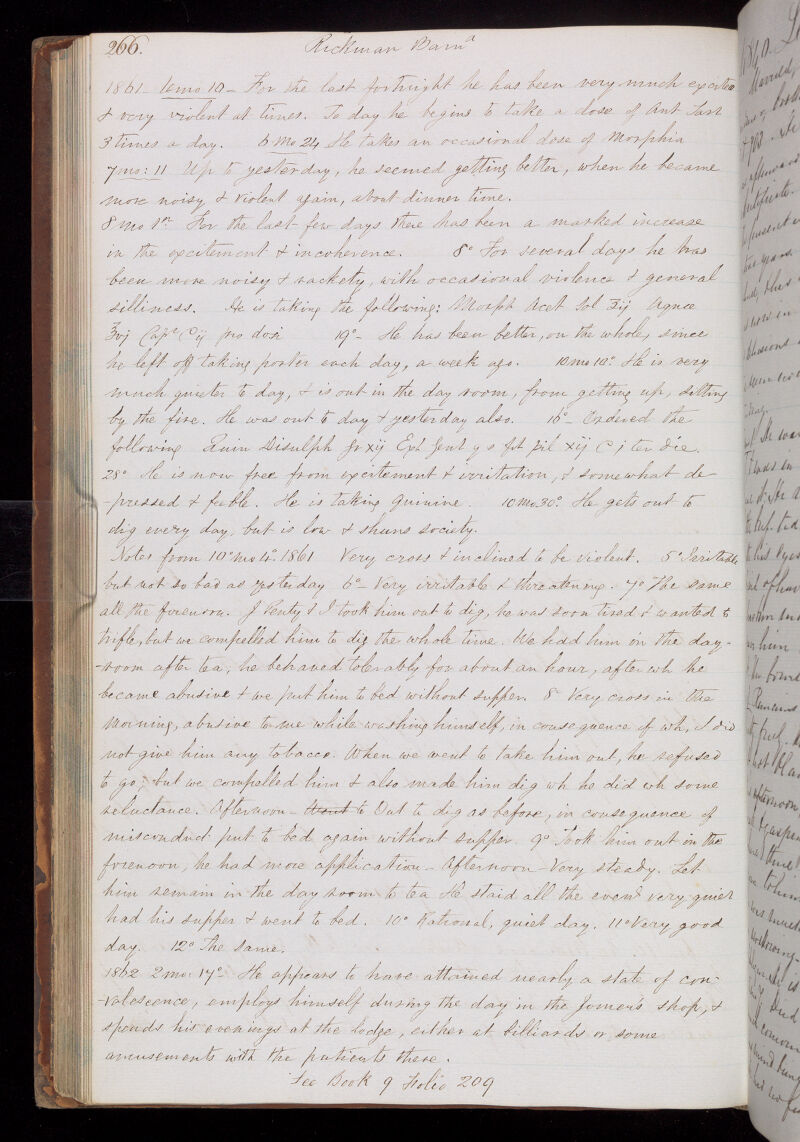 266. Rickman Barnd
1861 - 4mo 10 - For the last fortnight he has been very much excited
& very violent at times. To day he begins to take a dose of Ant Tart
3 times a day. 6 Mo 24 He takes an occasional dose of Morphia
7 mo: 11 Up to yesterday, he seemed getting better, when he became
more noisy & violent again, about dinner time.
8 mo 1st For the last few days there has been a marked increase
in the excitement & incoherence. 8° For several days he has
been more noisy & rackety, with occasional violence & general
silliness. He is taking the following: Morph Acet Sol ʒij Aquae
℥vj Capt Cij pro dosi 19° - He has been better, on the whole, since
he left off taking porter each day, a week ago. 10 mo 10° He is very
much quieter to day, & is out in the day room, from getting up, sitting
by the fire. He was out to day & yesterday also. 16° - Ordered the
following Quin Disulph gr xij Ext Gent q s ft pil xij C j ter die.
28° He is now free from excitement & irritation, & somewhat de
-pressed & feeble. He is taking quinine. 10 Mo 30° He gets out to
dig every day, but is low & shuns society.
Notes from 10° mo 4° 1861 Very cross & inclined to be violent. 5° Irritable
but not so bad as yesterday 6° - Very irritable & threatening. 7° The same
all the forenoon. J Venty & I took him out to dig, he was soon tired & wanted to
trifle, but we compelled him to dig the whole time. We had him in the day-
-room after tea, he behaved tolerably for about an hour, after wh he
became abusive & we put him to bed without supper. 8 Very cross in the
Morning, abusive to me while washing himself, in consequence of wh, I did
not give him any tobacco. When we went to take him out, he refused
to go, but we compelled him & also made him dig wh he did wh some
reluctance. Afternoon - Went to Out to dig as before, in consequence of
misconduct put to bed again without supper. 9° Took him out in the
forenoon, he had more application - Afternoon - Very steady. Let
him remain in the day room to tea He staid all the eveng very quiet
had his supper & went to bed. 10° Rational, quiet day. 11° Very good
day. 12° The same.
1862 2 mo: 17° - He appears to have attained nearly a state of con-
-valescence, employs himself during the day in the Joiner's shop, &
spends his evenings at the lodge, either at billiards or some
amusements with the patients there.
See Book 9 Folio 209